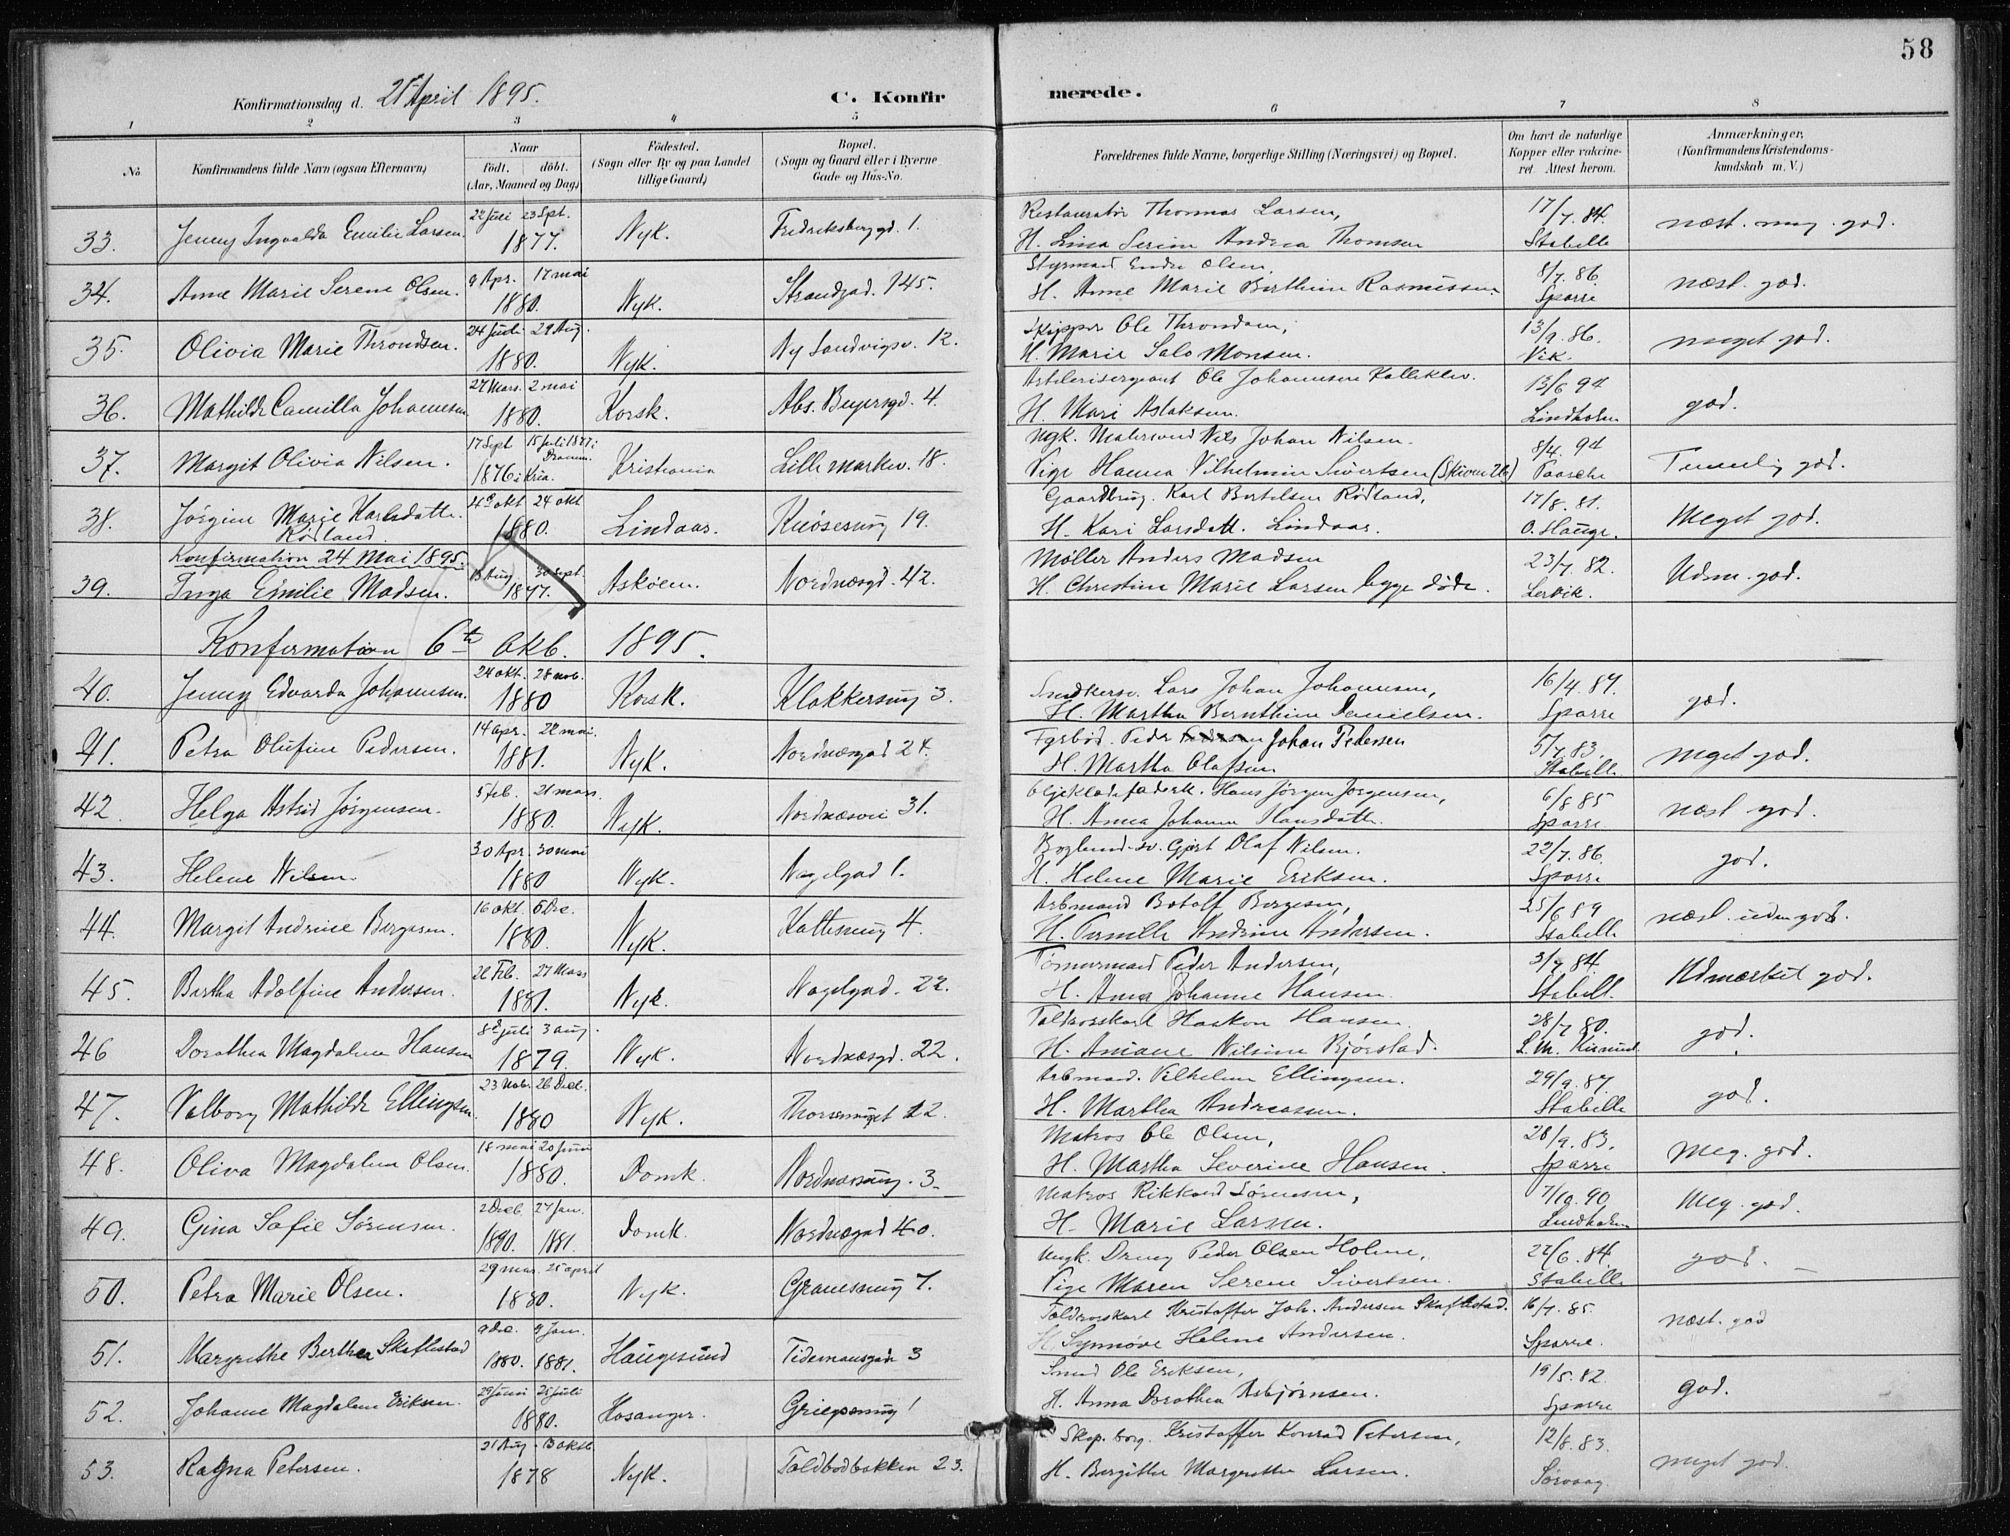 58
Konfirmationsdag d. 21 April 1895. C. Konfirmerede.
1 2 3 4 5 6 7 8
No Konfirmandens fulde Navn (ogsaa Efternavn) Naar født. döbt. (Aar, Maaned og Dag) Födested. (Sogn eller By og paa Landet tillige Gaard) Bopæl. (Sogn og Gaard eller i Byerne Gade og Hus-No. Forældrenes fulde Navne, borgerlige Stilling (Næringsvei) og Bopæl. Om havt de naturlige Kopper eller vakcineret. Attest herom. Anmærkninger, (Konfirmandens Kristendomskundskab m. V.)
33. Jenny Ingvalda Emilie Larsen. 22 Juli 23 Spt. 1877. Nyk. Fredriksberggd. 1. Restauratør Thomas Larsen, H. Lina Serine Andrea Thomsen 17/7. 84. Stabell næst. meg. god.
34. Anne Marie Serene Olsen. 9 Apr. 17 mai 1880. Nyk. Strandgad. 145. Styrmand Endre Olsen, H. Anne Marie Berthine Rasmussen. 8/7. 86 Sparre næst. god.
35. Olivia Marie Throndsen. 24 Juli 29 Aug. 1880. Nyk. Ny Sandvigsv. 12. Skipper Ole Throndsen, H. Marie Salomonsen. 13/9. 86. Vik. meget god.
36. Mathilde Camilla Johannesen 27 Mars. 2 mai 1880. Korsk. Abs. Beyersgd. 4. Artilerisergeant Ole Johannesen Kalleklev. H. Mari Aslaksen. 13/6 94 Lindholm god.
37. Margit Olivia Nilsen. 17 Sept 1876 i Kria. 15 Juli 1877 i Dramm. Kristiania Lille markev. 18. Ugk. Malersvend Nils Johan Nilsen. Pige Hanna Vilhelmine Sivertsen (Skiven 26) 8/4. 94 Paasche Temmelig god.
38. Jørgine Marie Karlsdatter Rødland. 4de okt 24 okt 1880. Lindaas. Knøsesmug 19. Gaardbrug. Karl Bertelsen Rødland, H. Kari Larsdatt. Lindaas. 17/8. 81. O. Hauge. Meget god.
Konfirmation 24 Mai 1895.
39. Inga Emilie Madsen. 13 Aug 30 Sept. 1877. Askøen. Nordnæsgd. 42. Møller Anders Madsen H. Christine Marie Larsen begge døde. 23/7. 82. Lervik. Udm. god.
Konfirmation 6te Okb. 1895.
40. Jenny Edvarda Johannesen. 24 okt. 28 nob. 1880 Korsk. Klokkersmug 3. Snedkersv. Lars Johan Johannesen, H. Martha Bernthine Danielsen. 16/4. 87. Sparre god.
41. Petra Olufine Pedersen. 14 apr. 22 mai. 1881. Nyk. Nordnæsgad 24. Fyrbød. Peder Johan Pedersen H. Martha Olafsen 5/7 83. Stabell meget god.
42. Helga Astrid Jørgensen. 5 feb. 21 mars. 1880. Nyk. Nordnæsvei 31. Oljeklædefaberk. Hans Jørgen Jørgensen, H. Anna Johanne Hansdatter. 6/8 85 Sparre næst god.
43. Helene Nilsen. 30 Apr. 30 mai 1880 Nyk. Nagelgad 1. H. Helene Marie Eriksen. 22/7. 86. Sparre god.
44. Margit Andrine Bergesen. 16 okt. 6 Dec. 1880. Nyk. Kattesmug 4. Arbmand Botolf Bergesen, H. Pernille Andrine Andersen. 25/6 89 Stabell næst. udm god.
45. Bertha Adolfine Andersen. 26 Feb. 27 Mars 1881. Nyk. Nagelgad. 22. Tømmermand Peder Andersen, H. Anna Johanne Hansen. 3/7 84 Stabell. Udmærket god.
46 Dorothea Magdalene Hansen 8d juli 3 aug. 1879. Nyk. Nordnæsgd. 22. Toldrorskarl Haakon Hansen. H. Aniane Nilsine Bjørstad. 28/7 80. god.
47. Valborg Mathilde Ellingsen. 23 Nobr. 26 Dec. 1880 Nyk. Thoresmuget 22. Arbmand. Vilhelm Ellingsen. H. Martha Andreassen. 29/9. 87. Stabell god.
48. Oliva Magdalena Olsen. 18 mai 20 Juni 1880. Domk. Nordnæsmug. 3. Matros Ole Olsen, H. Martha Severine Hansen. 28/9. 83. Sparre Meg. god.
49. Gina Sofie Sørensen. 2 Decb. 1880. 27 Jan. 1881. Domk. Nordnæsgad 40. Matros Rikkard Sørensen, H. Marie Larsen. 7/10. 90 Lindholm Meg. god.
50. Petra Marie Olsen. 29 mar. 25 april 1880. Nyk. Granesmug 7. Ungk. Dreng Peder Olsen Holme, Pige Maren Serene Sivertsen. 22/6. 84. Stabell god.
51. Margrethe Berthea Skaftestad 9 Dec. 1880. 9 Jan. 1881. Haugesund Tidemansgad 3 Toldrorskarl Kristoffer Joh. Andersen Skaftestad. H. Synnøve Helene Andersen. 16/7. 85. Sparre. næst. god
52. Johanne Magdalene Eriksen. 29 Juni 25 Juli 1880. Hosanger. Griegsmug 1 Smed Ole Eriksen, H. Anna Dorothea Asbjørnsen. 19/5. 82. Sparre god.
53. Ragna Petersen. 21 Aug. 13 oktb 1878 Nyk. Toldbodbakken 23. Skop. borg. Kristoffer Konrad Petersen, H. Bergitte Margrethe Larsen. 12/8. 83. Sørvaag meget god.